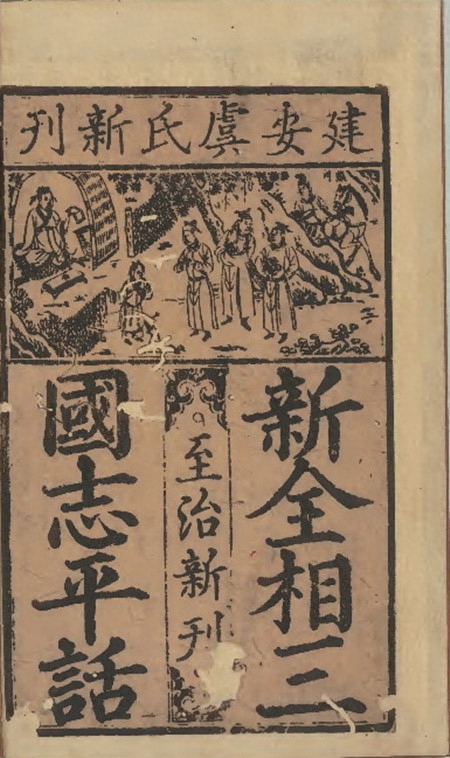 建安虞氏新刊
新全相三
至治新刊
國志平話